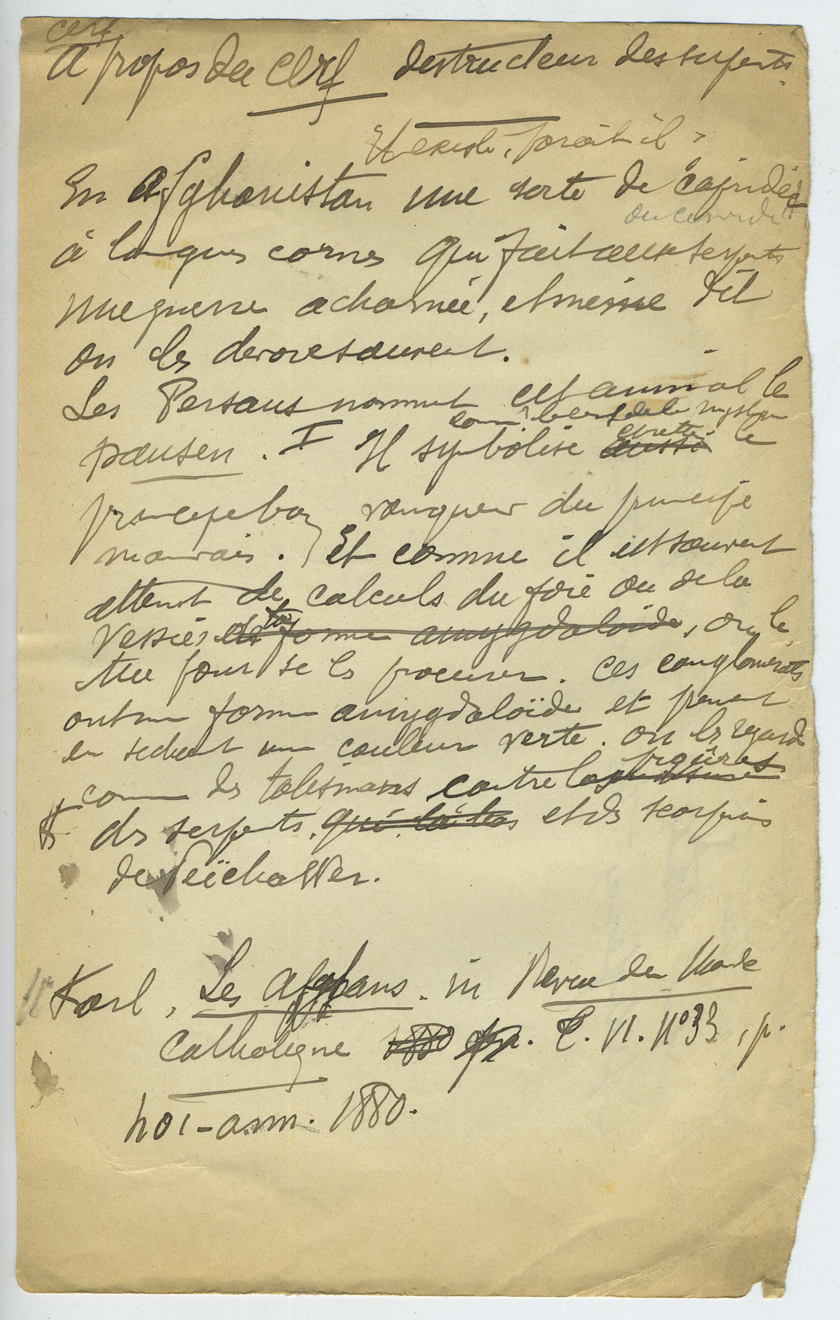 cerf
A propos du cerf destructeur des serpents.
Il existe, paraît il
En Afghanistan une sorte de capridé
ou cervidé
à longues cornes qui fait aux serpents
une guerre acharnée, et même dit
on les dévore souvent.
Les Persans nomment cet animal le
pausen. Il symbolise aussi le
principe bon vainqueur du principe
mauvais. Et comme il est souvent
atteint de calculs du foie ou de la
vessie de forme amygdaloïde, on le
tue pour se les procurer. Ces conglomérats
ont une forme amygdaloïde et prennent
en séchant une couleur verte. On les regarde
comme des talismans contre les piqûres
des serpents, et des scorpions
de Peïchawer.
Karl, Les Afghans. in Revue du Monde
Catholique 1880 T. VI. N°33, p.
401-402. 1880.